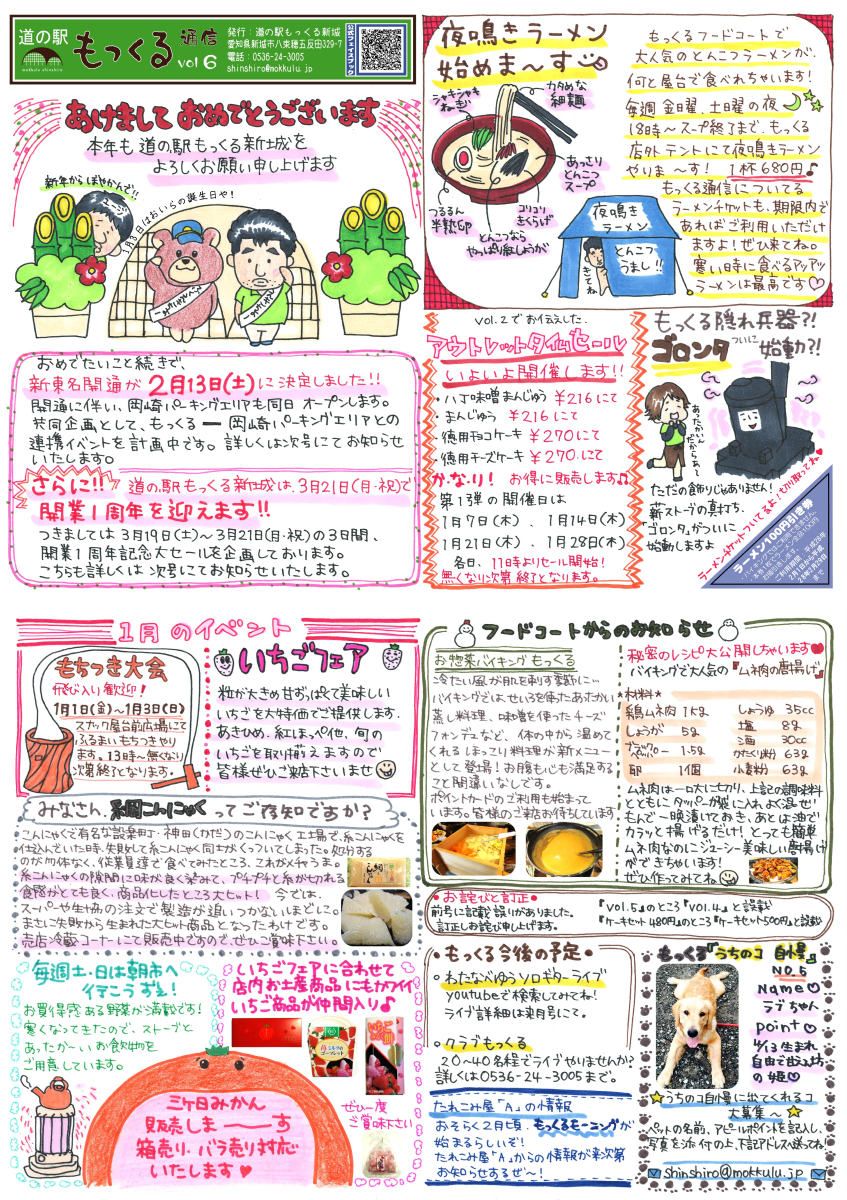 道の駅
もっくる 通信
mokkulu shinshiro
vol 6
発行：道の駅もっくる新城
愛知県新城市八束穂五反田329-7
電話：0536-24-3005
shinshiro@mokkulu.jp
公式フェイスブック
あけまして おめでとうございます
本年も 道の駅もっくる新城を
よろしくお願い申し上げます
新年からぼやかんで!!
1月3日はおいらの誕生日や!
おめでたいこと続きで、
新東名開通が 2月13日(土)に決定しました!!
開通に伴い、岡崎パーキングエリアも同日 オープンします。
共同企画として、もっくる ー 岡崎パーキングエリアとの
連携イベントを計画中です。詳しくは次号にてお知らせ
いたします。
さらに!! 道の駅もっくる新城は、3月21日(月・祝)で
開業1周年を迎えます!!
つきましては 3月19日(土)～3月21日(月・祝)の3日間、
開業1周年記念大セールを企画しております。
こちらも詳しくは 次号にてお知らせいたします。
夜鳴きラーメン
始めま～す
シャキシャキ
ねぎ
カタめな
細麺
あっさり
とんこつ
スープ
つるるん
半熟卵
コリコリ
きくらげ
とんこつなら
やっぱり紅しょうが
夜鳴き
ラーメン
とんこつ
うまし!!
きてね
もっくるフードコートで
大人気のとんこつラーメンが、
何と屋台で食べれちゃいます!
毎週 金曜、土曜の夜
18時～スープ終了まで、もっくる
店外テントにて夜鳴きラーメン
やりま～す! 1杯680円♪
もっくる通信についてる
ラーメンチケットも、期限内で
あればご利用いただけ
ますよ！ぜひ来てね。
寒い時に食べるアツアツ
ラーメンは最高です♡
vol.2でお伝えした、
アウトレットタイムセール
いよいよ開催します!!
・八丁味噌まんじゅう ¥216にて
・まんじゅう ¥216にて
・徳用チョコケーキ ¥270にて
・徳用チーズケーキ ¥270にて
か・な・り! お得に販売します♫
第1弾の開催日は
1月7日(木)、1月14日(木)
1月21日(木)、1月28日(木)
各日、11時よりセール開始!
無くなり次第終了となります。
もっくる隠れ兵器?!
ゴロンタ ついに 始動?!
あったかいん
だからぁて
ただの飾りじゃありません!
薪ストーブの真打ち、
「ゴロンタ」がついに
始動しますよ
ラーメンチケットついてるよ！切り取ってね♥
ラーメン100円引き券
1月のイベント
もちつき大会
飛び入り歓迎!
1月1日(金)～1月3日(日)
スナック屋台前広場にて
ふるまいもちつきやり
ます。13時～無くなり
次第終了となります。
いちごフェア
粒が大きめ甘ずっぱくて美味しい
いちごを大特価でご提供します。
あきひめ、紅ほっぺ他、旬の
いちごを取り揃えますので
皆様ぜひご来店下さいませ
みなさん、絹こんにゃくってご存知ですか?
こんにゃくで有名な設楽町・神田(かだ)のこんにゃく工場で、糸こんにゃくを
仕込んでいた時、失敗して糸こんにゃく同士がくっついてしまった。処分する
のが勿体なく、従業員達で食べてみたところ、これがメチャうま。
糸こんにゃくの隙間に味が良く染みて、プチプチと糸が切れる
食感がとても良く、商品化したところ大ヒット! 今では、
スーパーや生協の注文で製造が追いつかないほどに。
まさに失敗から生まれた大ヒット商品となったわけです。
売店冷蔵コーナーにて販売中ですので、ぜひご賞味下さい。
毎週土・日は朝市へ
行こうずぇ!
お買得感ある野菜が満載です!
寒くなってきたので、ストーブと
あったか～いお飲物を
ご用意しています。
いちごフェアに合わせて
店内お土産商品にもカワイイ
いちご商品が仲間入り♪
ぜひ一度
ご賞味下さい
三ヶ日みかん
販売しま――す
箱売り、バラ売り対応
いたします♥
フードコートからのお知らせ
お惣菜バイキング もっくる
冷たい風が肌を刺す季節に…
バイキングでは、せいろを使ったあたたかい
蒸し料理、味噌を使ったチーズ
フォンデュなど、体の中から温めて
くれる ほっこり料理が新メニュー
として登場! お腹も心も満足する
こと間違いなしです。
ポイントカードのご利用も始まって
います。皆様のご来店お待ちしています
秘密のレシピ大公開しちゃいます♥
バイキングで大人気の『ムネ肉の唐揚げ』
＊材料＊
鶏ムネ肉 1kg しょうゆ 35cc
しょうが 5g 塩 8g
ブラックペッパー 1.5g 酒 30cc
卵 1個 かたくり粉 63g
小麦粉 63g
ムネ肉は一口大に切り、上記の調味料
とともにタッパーか袋に入れ、よく混ぜ!
もんで一晩漬けておき、あとは油で
カラッと揚げるだけ! とっても簡単
ムネ肉なのにジューシー美味しい唐揚げ
ができちゃいます!
ぜひ作ってみてね。
・お詫びと訂正・
前号に記載誤りがありました。
訂正しお詫び申し上げます。
『vol.5』のところ『vol.4』と誤載
『ケーキセット480円』のところ『ケーキセット500円』と誤載
・もっくる今後の予定・
わたなべゆうソロギターライブ
Youtubeで検索してみてね!
ライブ詳細は来月号にて。
クラブもっくる
20～40名程でライブやりませんか?
詳しくは0536-24-3005まで。
たれこみ屋「A」の情報
おそらく2月頃、もっくるモーニングが
始まるらしいぞ!
たれこみ屋「A」からの情報が来次第
お知らせするぜ～!
もっくる『うちのコ 自慢』
NO.5
Name♡
ラブちゃん
point♡
4/13生まれ
うちのコ自慢に出てくれるコ
大募集～
ペットの名前、アピールポイントを記入し、
写真を添付の上、下記アドレスへ送ってね!
shinshiro@mokkulu.jp